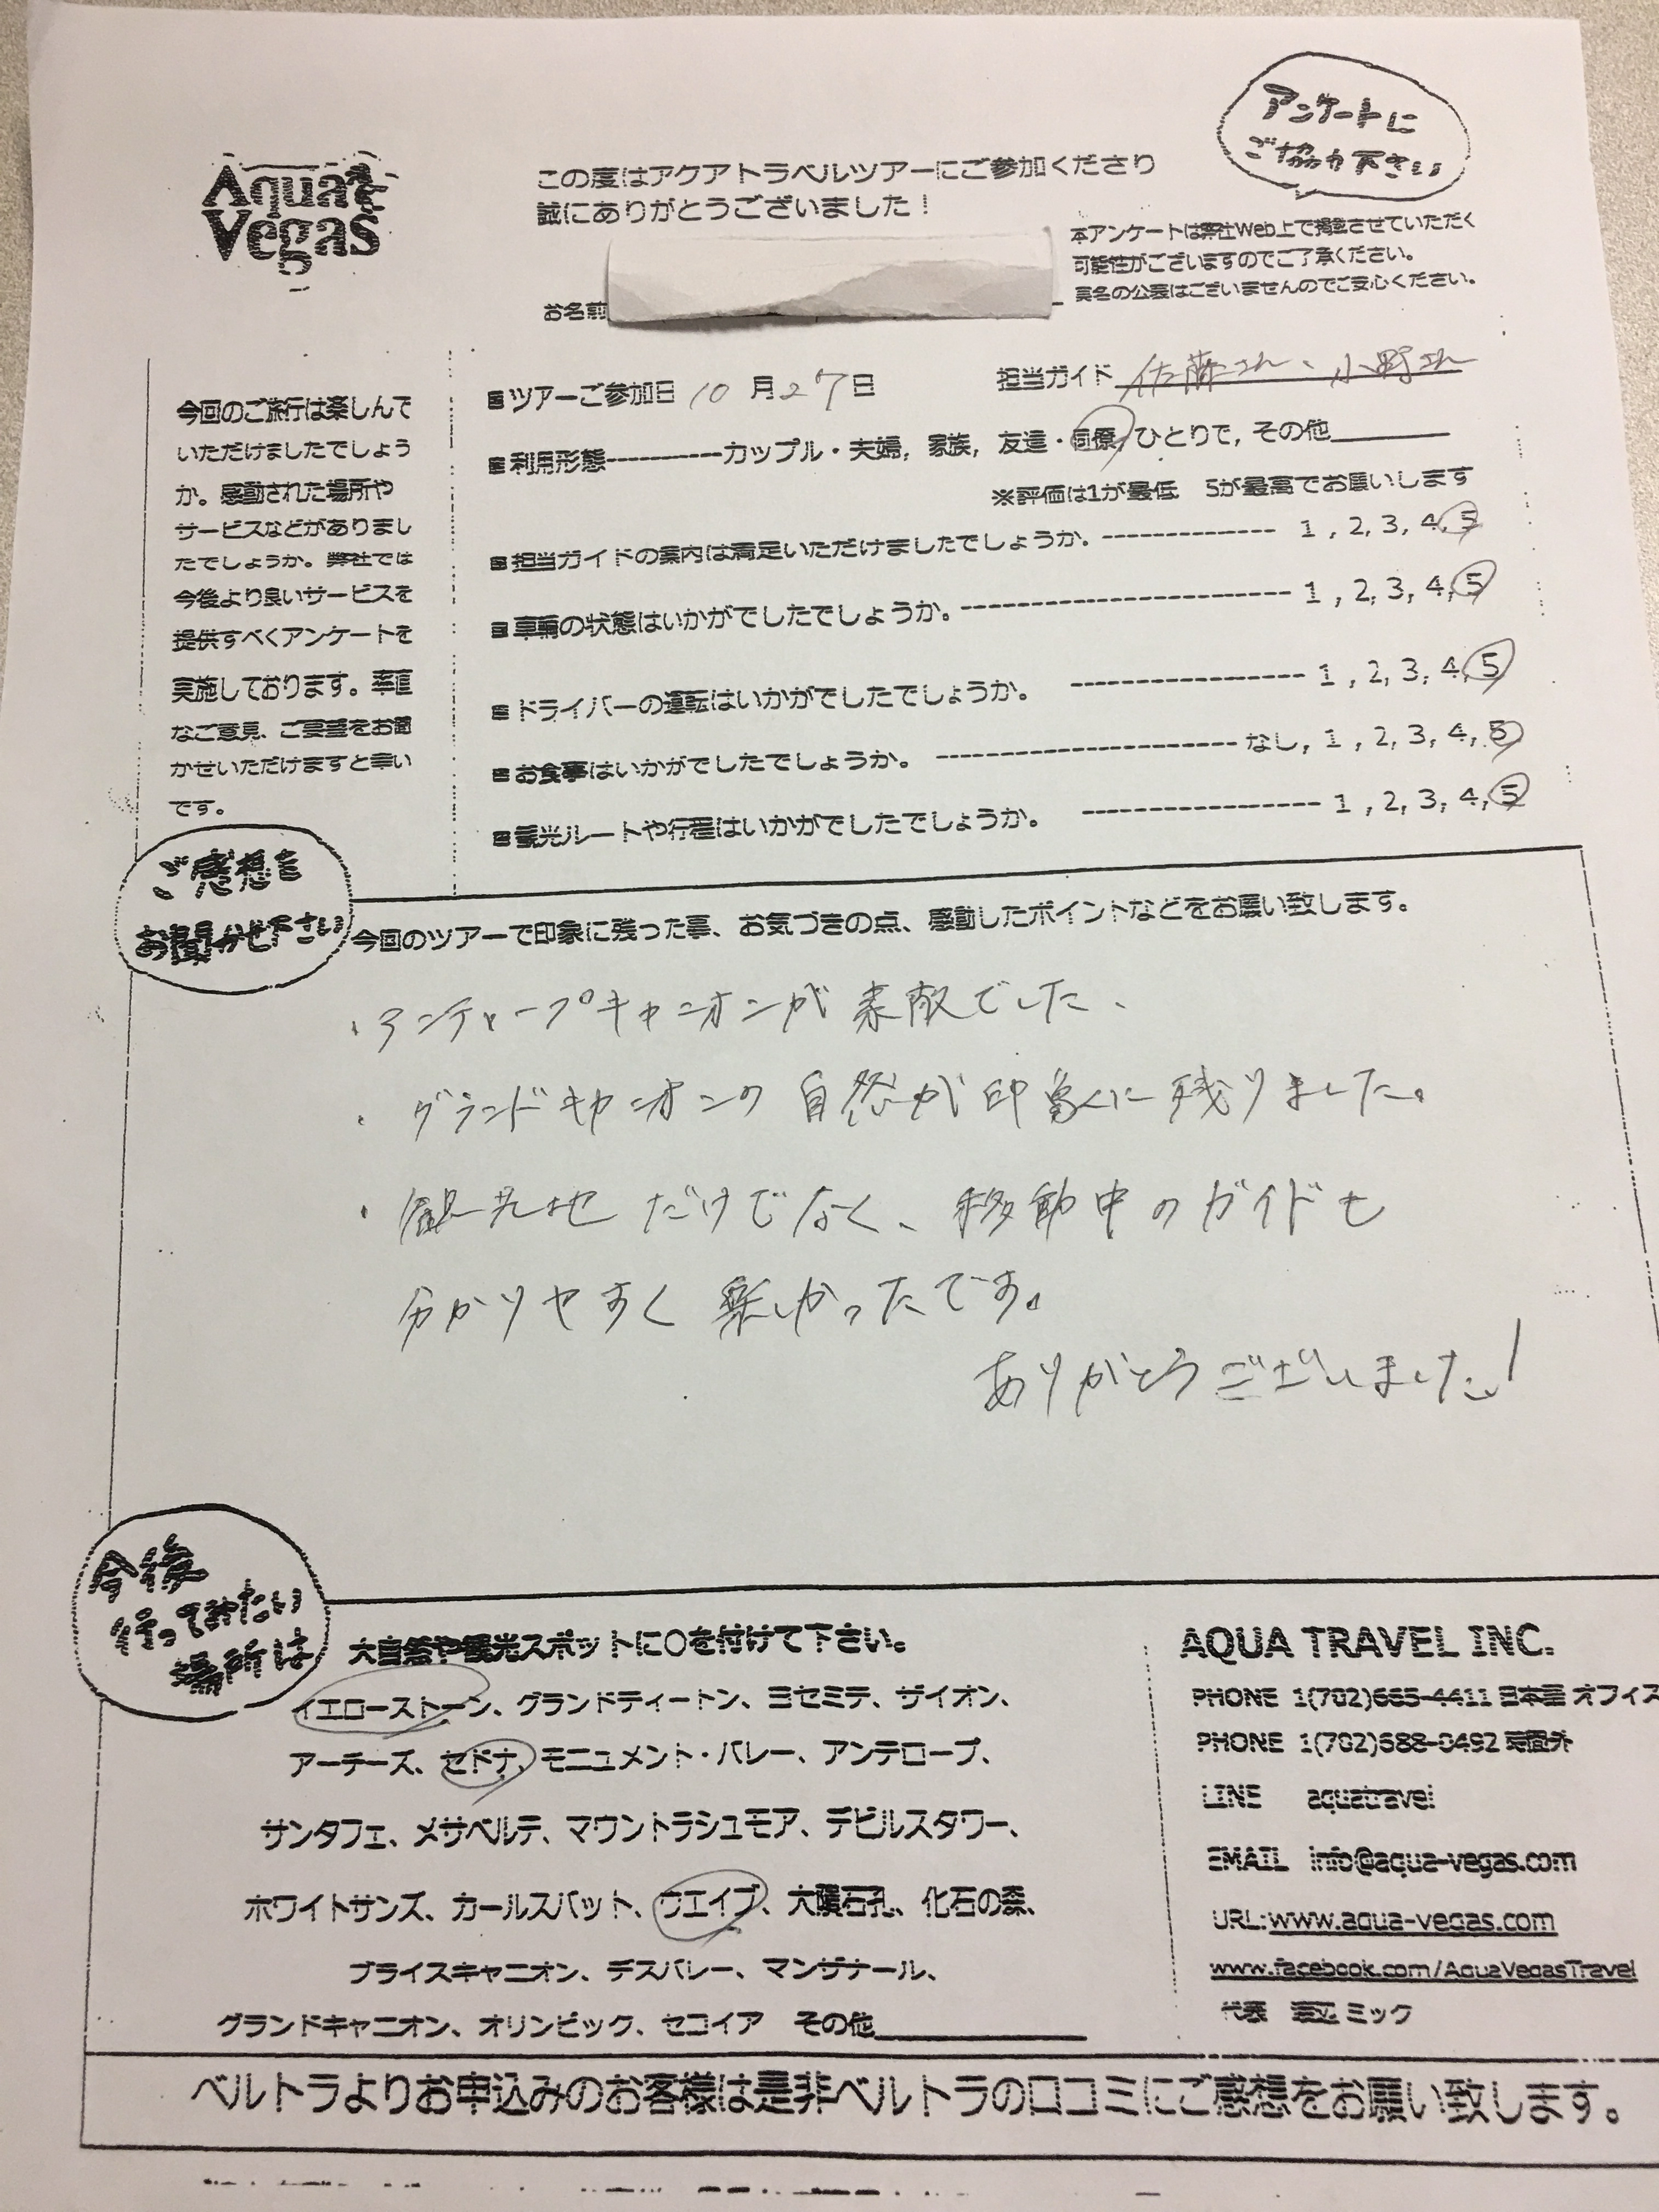 Aqua
Vegas
アンケートに
ご協力下さい
この度はアクアトラベルツアーにご参加くださり
誠にありがとうございました！
本アンケートは弊社Web上で掲載させていただく
可能性がございますのでご了承ください。
実名の公表はございませんのでご安心ください。
お名前
今回のご旅行は楽しんで
いただけましたでしょう
か。感動された場所や
サービスなどがありまし
たでしょうか。弊社では
今後より良いサービスを
提供すべくアンケートを
実施しております。率直
なご意見、ご要望をお聞
かせいただけますと幸い
です。
■ツアーご参加日 10月27日 担当ガイド 佐藤さん、小野さん
■利用形態----------カップル・夫婦, 家族, 友達・同僚, ひとりで, その他
※評価は1が最低 5が最高でお願いします
■担当ガイドの案内は満足いただけましたでしょうか。------------- 1, 2, 3, 4, 5
■車輌の状態はいかがでしたでしょうか。------------------------- 1, 2, 3, 4, 5
■ドライバーの運転はいかがでしたでしょうか。 ----------------- 1, 2, 3, 4, 5
■お食事はいかがでしたでしょうか。 ---------------------- なし, 1, 2, 3, 4, 5
■観光ルートや行程はいかがでしたでしょうか。 ----------------- 1, 2, 3, 4, 5
ご感想を
お聞かせ下さい
今回のツアーで印象に残った事、お気づきの点、感動したポイントなどをお願い致します。
・アンテロープキャニオンが素敵でした、
・グランドキャニオンの自然が印象に残りました。
・観光地だけでなく、移動中のガイドも
分かりやすく楽しかったです。
ありがとうございました！
今後
行ってみたい
場所は
大自然や観光スポットに○を付けて下さい。
イエローストーン、グランドティートン、ヨセミテ、ザイオン、
アーチーズ、セドナ、モニュメント・バレー、アンテロープ、
サンタフェ、メサベルデ、マウントラシュモア、デビルスタワー、
ホワイトサンズ、カールスバット、ウエイブ、大隕石孔、化石の森、
ブライスキャニオン、デスバレー、マンザナール、
グランドキャニオン、オリンピック、セコイア その他
AQUA TRAVEL INC.
PHONE 1(702)665-4411 日本語オフィス
PHONE 1(702)688-0492
LINE aquatravel
EMAIL info@aqua-vegas.com
URL:www.aqua-vegas.com
www.facebook.com/AquaVegasTravel
代表 渡辺 ミック
ベルトラよりお申込みのお客様は是非ベルトラの口コミにご感想をお願い致します。